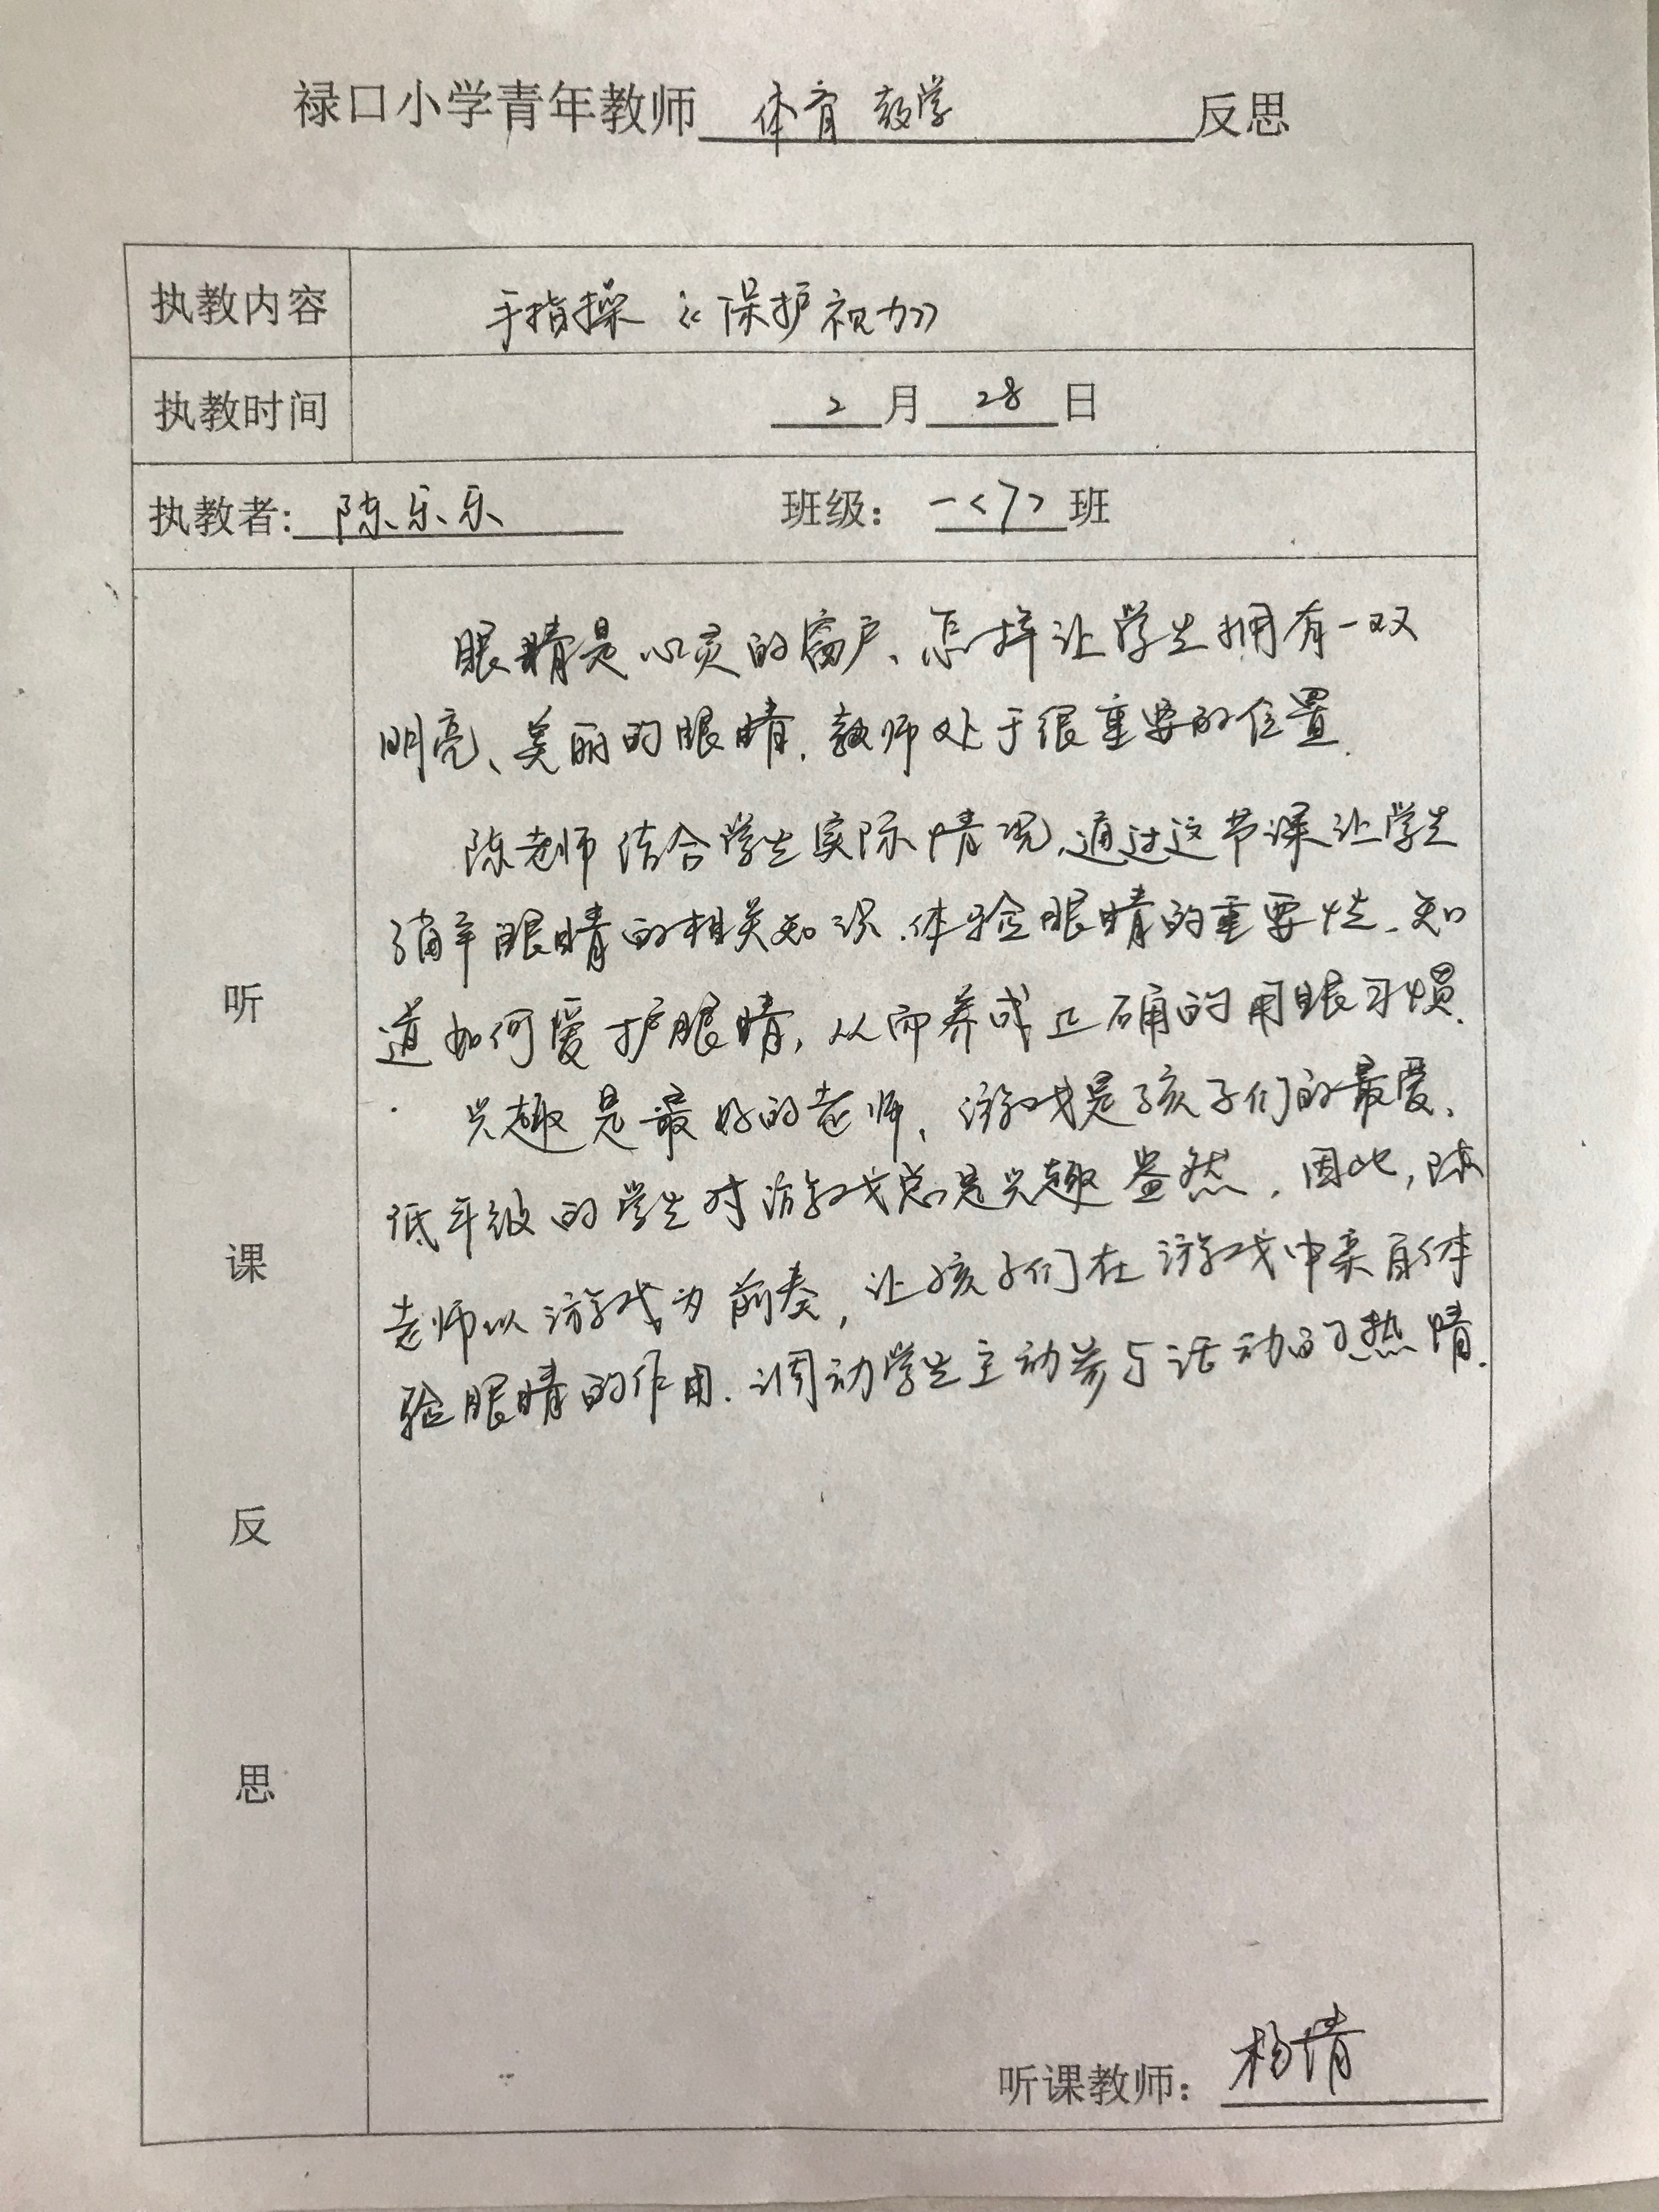 禄口小学青年教师 体育教学 反思
执教内容 手指操《保护视力》
执教时间 2月28日
执教者: 陈乐乐 班级: 一<7>班
听课反思
眼睛是心灵的窗户、怎样让学生拥有一双
明亮、美丽的眼睛.教师处于很重要的位置.
陈老师结合学生实际情况,通过这节课让学生
了解眼睛的相关知识.体验眼睛的重要性.知
道如何爱护眼睛,从而养成正确的用眼习惯.
兴趣是最好的老师,游戏是孩子们的最爱.
低年级的学生对游戏总是兴趣盎然.因此,陈
老师以游戏为前奏,让孩子们在游戏中亲自体
验眼睛的作用.调动学生主动参与活动的热情.
听课教师: 杨倩